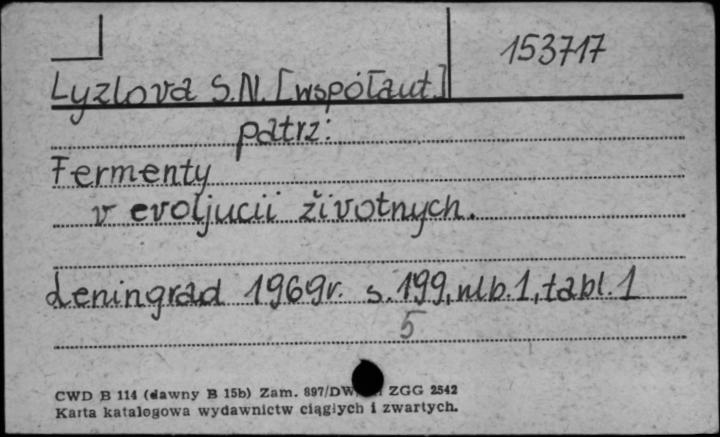 153717
Lyzlova S.N. [współaut.]
patrz:
Fermenty
v evoljucii životnych.
Leningrad 1969r. s. 199, nlb. 1, tabl. 1
5
CWD B 114 (dawny B 15b) Zam. 897/DW ZGG 2542
Karta katalogowa wydawnictw ciągłych i zwartych.